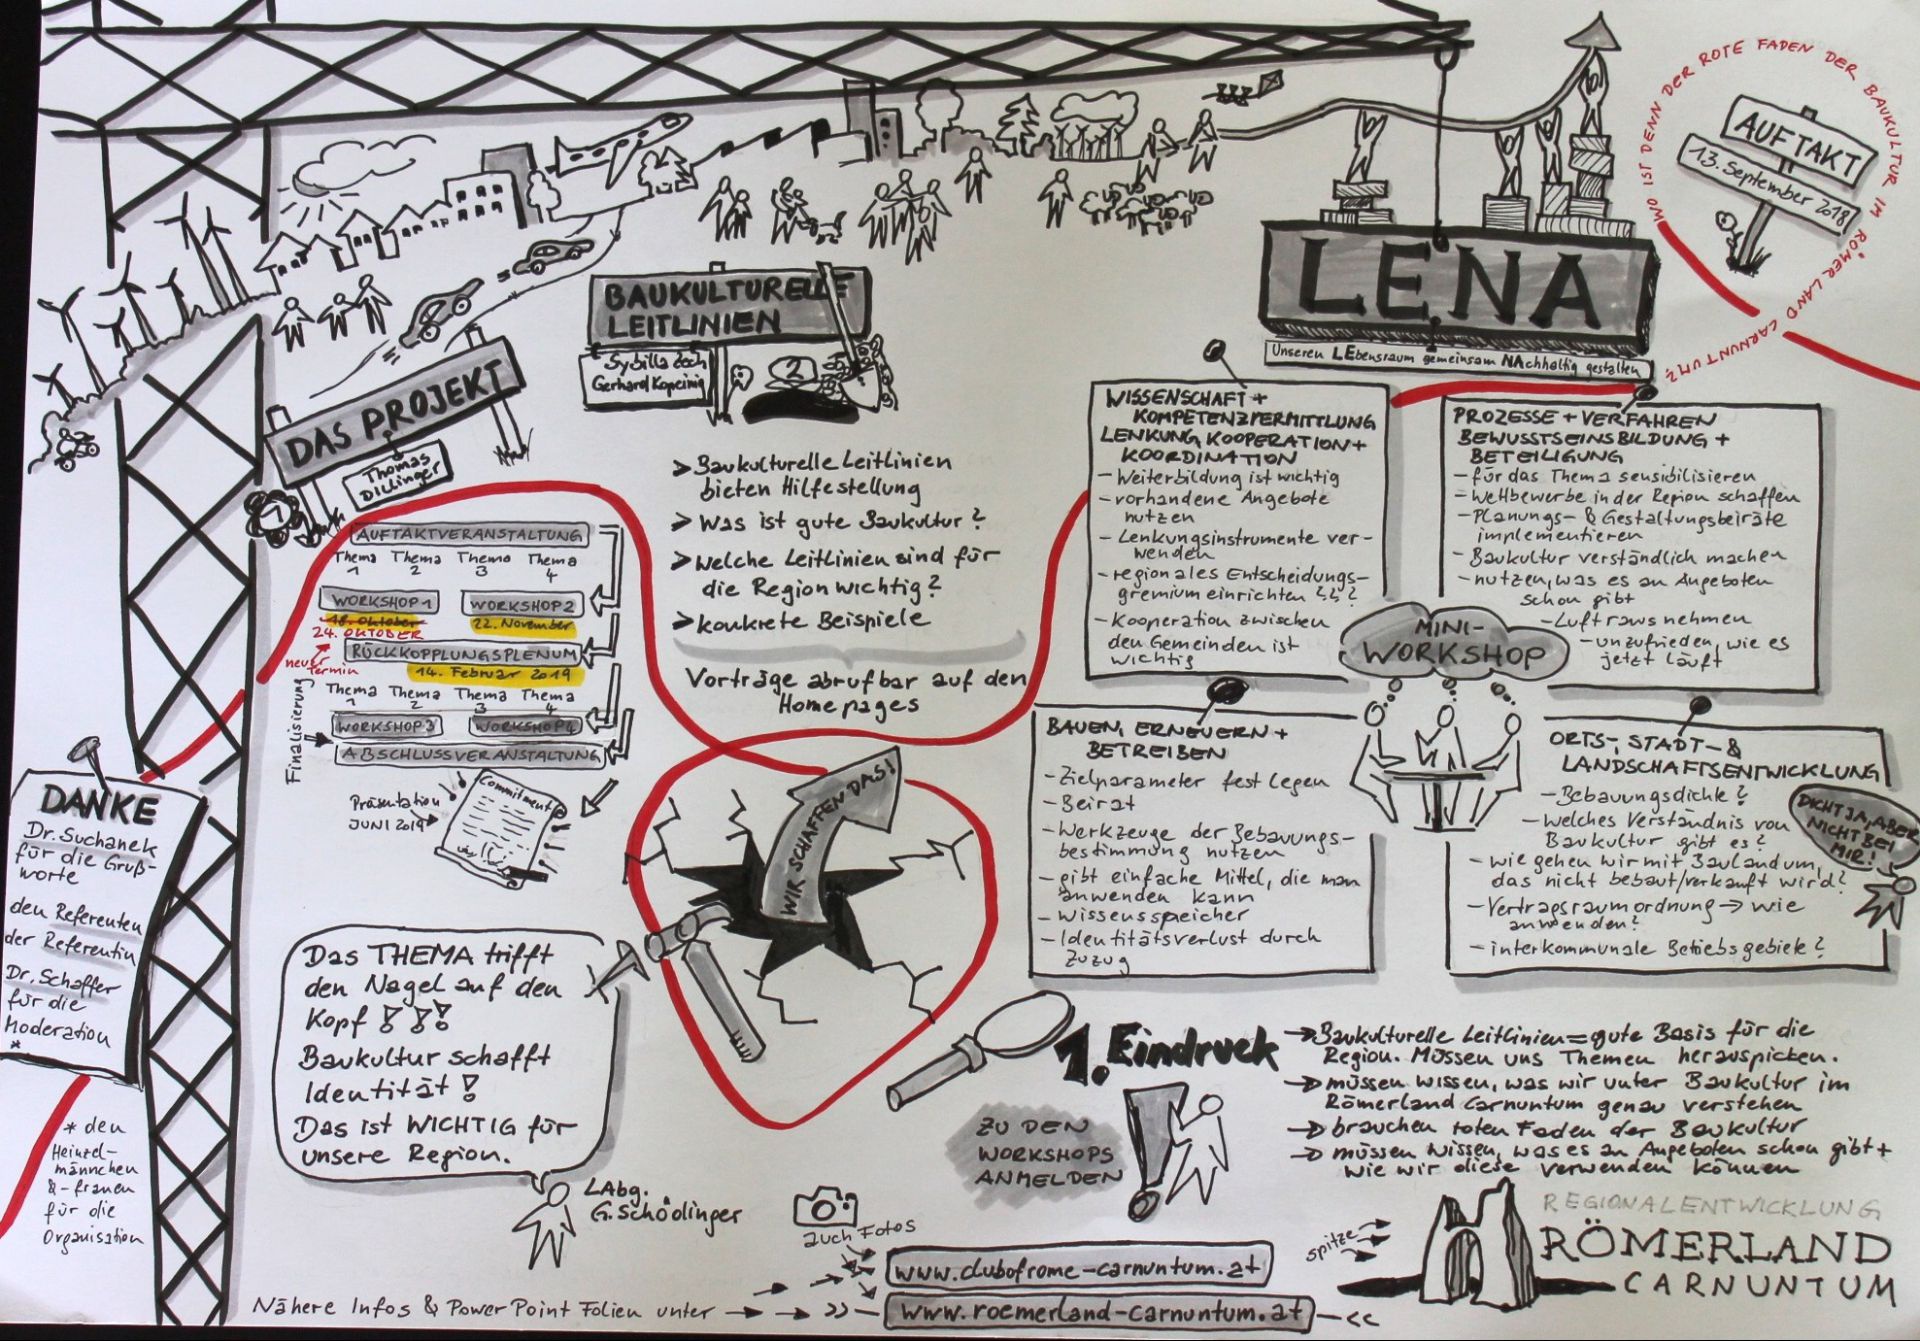 WO IST DENN DER ROTE FADEN DER BAUKULTUR IM RÖMERLAND CARNUNTUM?
AUFTAKT
13. September 2018
LENA
Unseren LEbensraum gemeinsam NAchhaltig gestalten
DAS PROJEKT
Thomas
Dillinger
1
AUFTAKTVERANSTALTUNG
Thema Thema Thema Thema
1 2 3 4
WORKSHOP 1 WORKSHOP 2
18. Oktober 22. November
24. OKTOBER
neuer
Termin
RÜCKKOPPLUNGSPLENUM
14. Februar 2019
Thema Thema Thema Thema
1 2 3 4
Finalisierung
WORKSHOP 3 WORKSHOP 4
ABSCHLUSSVERANSTALTUNG
Präsentation
JUNI 2019
Commitment
BAUKULTURELLE
LEITLINIEN
Sybilla Zech
Gerhard Kopeinig
2
> Baukulturelle Leitlinien
bieten Hilfestellung
> Was ist gute Baukultur?
> welche Leitlinien sind für
die Region wichtig?
> konkrete Beispiele
Vorträge abrufbar auf den
Homepages
WISSENSCHAFT +
KOMPETENZVERMITTLUNG
LENKUNG KOOPERATION +
KOORDINATION
- Weiterbildung ist wichtig
- vorhandene Angebote
nutzen
- Lenkungsinstrumente ver-
wenden
- regionales Entscheidungs-
gremium einrichten ???
- Kooperation zwischen
den Gemeinden ist
wichtig
PROZESSE + VERFAHREN
BEWUSSTSEINSBILDUNG +
BETEILIGUNG
- für das Thema sensibilisieren
- Wettbewerbe in der Region schaffen
- Planungs- & Gestaltungsbeiräte
implementieren
- Baukultur verständlich machen
- nutzen, was es an Angeboten
schon gibt
- Luft raus nehmen
- unzufrieden, wie es
jetzt läuft
MINI-
WORKSHOP
BAUEN, ERNEUERN +
BETREIBEN
- Zielparameter fest legen
- Beirat
- Werkzeuge der Bebauungs-
bestimmung nutzen
- gibt einfache Mittel, die man
anwenden kann
- Wissensspeicher
- Identitätsverlust durch
Zuzug
ORTS-, STADT- &
LANDSCHAFTSENTWICKLUNG
- Bebauungsdichte?
- Welches Verständnis von
Baukultur gibt es?
- wie gehen wir mit Bauland um,
das nicht bebaut/verkauft wird?
- Vertragsraumordnung → wie
anwenden?
- interkommunale Betriebsgebiete?
DICHT JA, ABER
NICHT BEI
MIR!
WIR SCHAFFEN DAS!
DANKE
Dr. Suchanek
für die Gruß-
worte
den Referenten
der Referentin
Dr. Schaffer
für die
Moderation
*
* den
Heinzel-
männchen
& -frauen
für die
Organisation
Das THEMA trifft
den Nagel auf den
Kopf !!!
Baukultur schafft
Identität!
Das ist WICHTIG für
unsere Region.
LAbg.
G. Schödinger
1. Eindruck
→ Baukulturelle Leitlinien = gute Basis für die
Region. Müssen uns Themen herauspicken.
→ müssen wissen, was wir unter Baukultur im
Römerland Carnuntum genau verstehen
→ brauchen roten Faden der Baukultur
→ müssen wissen, was es an Angeboten schon gibt +
wie wir diese verwenden können
ZU DEN
WORKSHOPS
ANMELDEN
auch Fotos
www.clubofrome-carnuntum.at
Nähere Infos & PowerPoint Folien unter
www.roemerland-carnuntum.at
spitze
REGIONALENTWICKLUNG
RÖMERLAND
CARNUNTUM